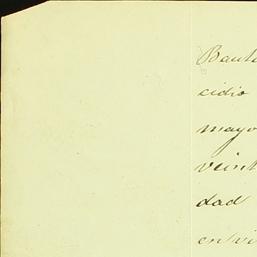 Baut
cidio
mayo
veint
dad
en vi